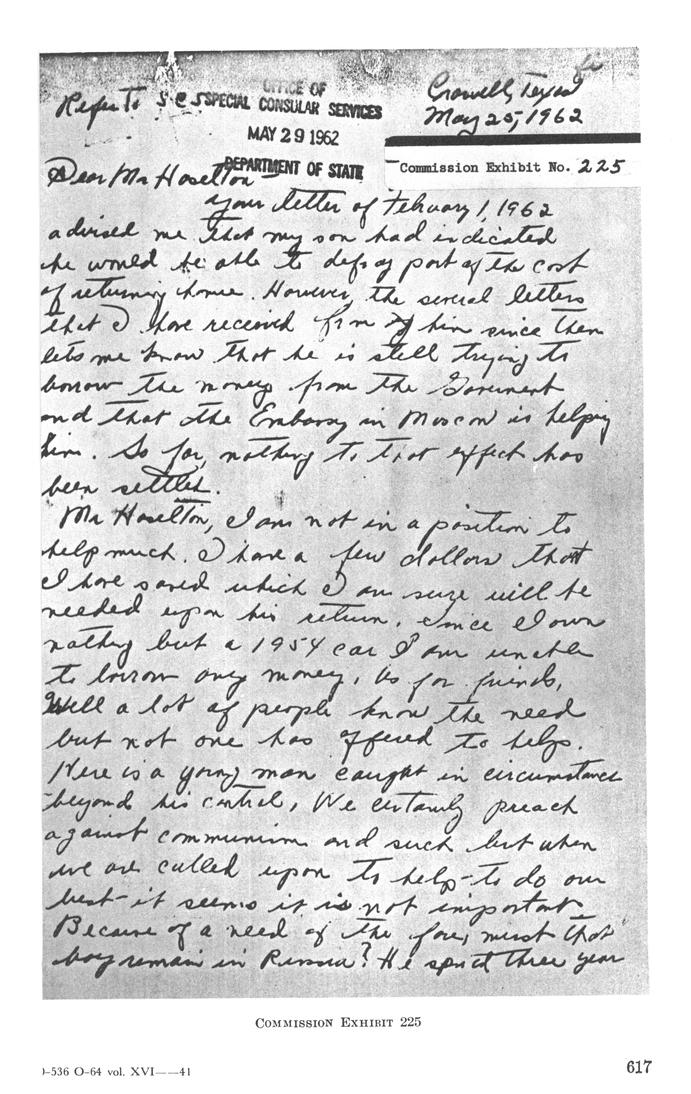 Refer To S C S
OFFICE OF
SPECIAL CONSULAR SERVICES
MAY 29 1962
DEPARTMENT OF STATE
Crowell, Texas
May 25, 1962
Commission Exhibit No. 225
Dear Mr Haselton
Your letter of Febuary 1, 1962
advised me that my son had indicated
he would be able to defray part of the cost
of returning home. However, the several letters
that I have received from of him since then
lets me know that he is still trying to
borrow the money from the Goverment
and that the Embassy in Moscow is helping
him. So far, nothing to that effect has
been settled.
Mr Haselton, I am not in a position to
help much. I have a few dollars that
I have saved which I am sure will be
needed upon his return. Since I own
nothing but a 1954 car I am unable
to borrow any money. As for friends,
Well a lot of people know the need
but not one has offered to help.
Here is a young man caught in circumstances
beyond his control, We certainly preach
against communism and such but when
we are called upon to help - to do our
best - it seems it is not important
Because of a need of the fare, must that
boy remain in Russia? He spent three year
COMMISSION EXHIBIT 225
-536 O-64 vol. XVI——41
617